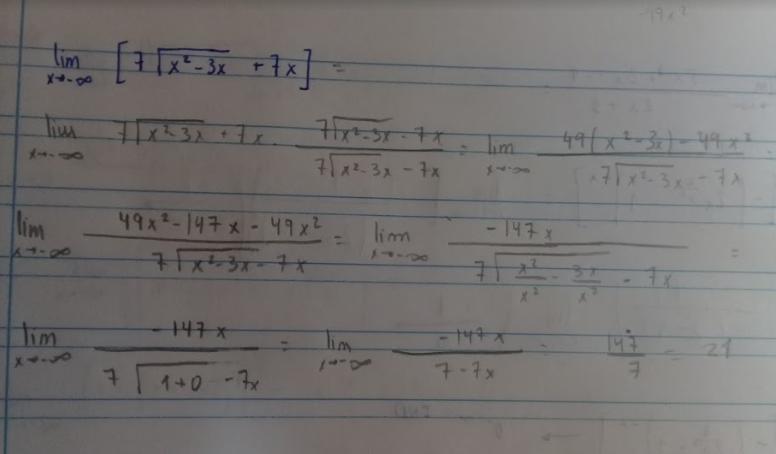 lim x→-∞ [7√(x²-3x) + 7x] =
lim x→-∞ 7√(x²-3x) + 7x · (7√(x²-3x) - 7x)/(7√(x²-3x) - 7x) = lim x→-∞ (49(x²-3x) - 49x²)/(7√(x²-3x) - 7x)
lim x→-∞ (49x² - 147x - 49x²)/(7√(x²-3x) - 7x) = lim x→-∞ (-147x)/(7√(x²/x² - 3x/x²) - 7x) =
lim x→-∞ (-147x)/(7√(1+0) - 7x) = lim x→-∞ (-147x)/(7-7x) = 147/7 = 21